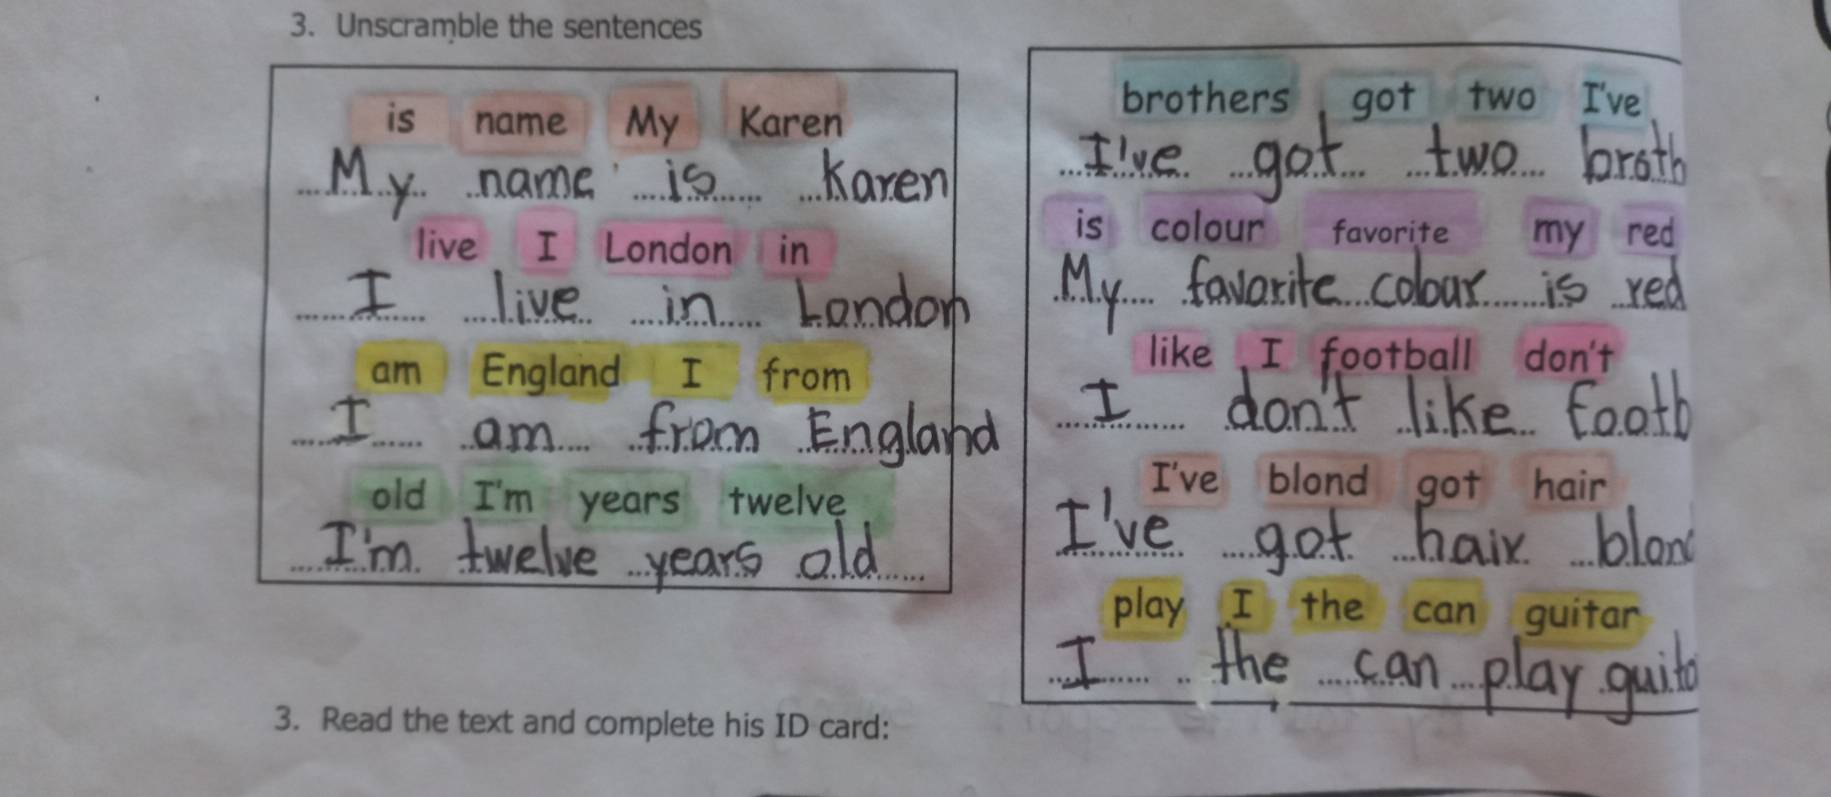 3. Unscramble the sentences
is name My Karen
My name is Karen
live I London in
I live in London
am England I from
I am from England
old I'm years twelve
I'm twelve years old
brothers got two I've
I've got two broth
is colour favorite my red
My favorite colour is red
like I football don't
I don't like footb
I've blond got hair
I've got hair blond
play I the can guitar
I the can play guita
3. Read the text and complete his ID card: